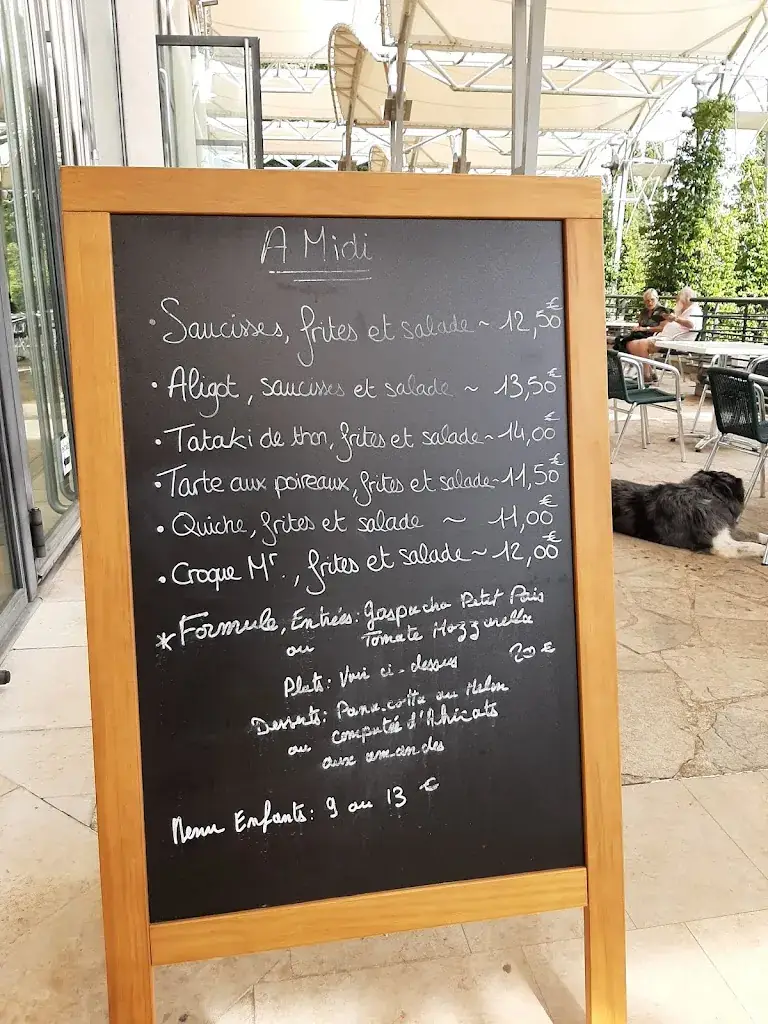 A Midi
• Saucisses, frites et salade ~ 12,50€
• Aligot, saucisses et salade ~ 13,50€
• Tataki de thon, frites et salade ~ 14,00€
• Tarte aux poireaux, frites et salade ~ 11,50€
• Quiche, frites et salade ~ 11,00€
• Croque Mr., frites et salade ~ 12,00€
* Formule, Entrées: gaspacho Petit Pois
ou Tomate Mozzarella
20 €
Plats: Voir ci-dessus
Desserts: Pana-cotta au Melon
ou compotée d'Abricots
aux amandes
Menu Enfants: 9 ou 13 €